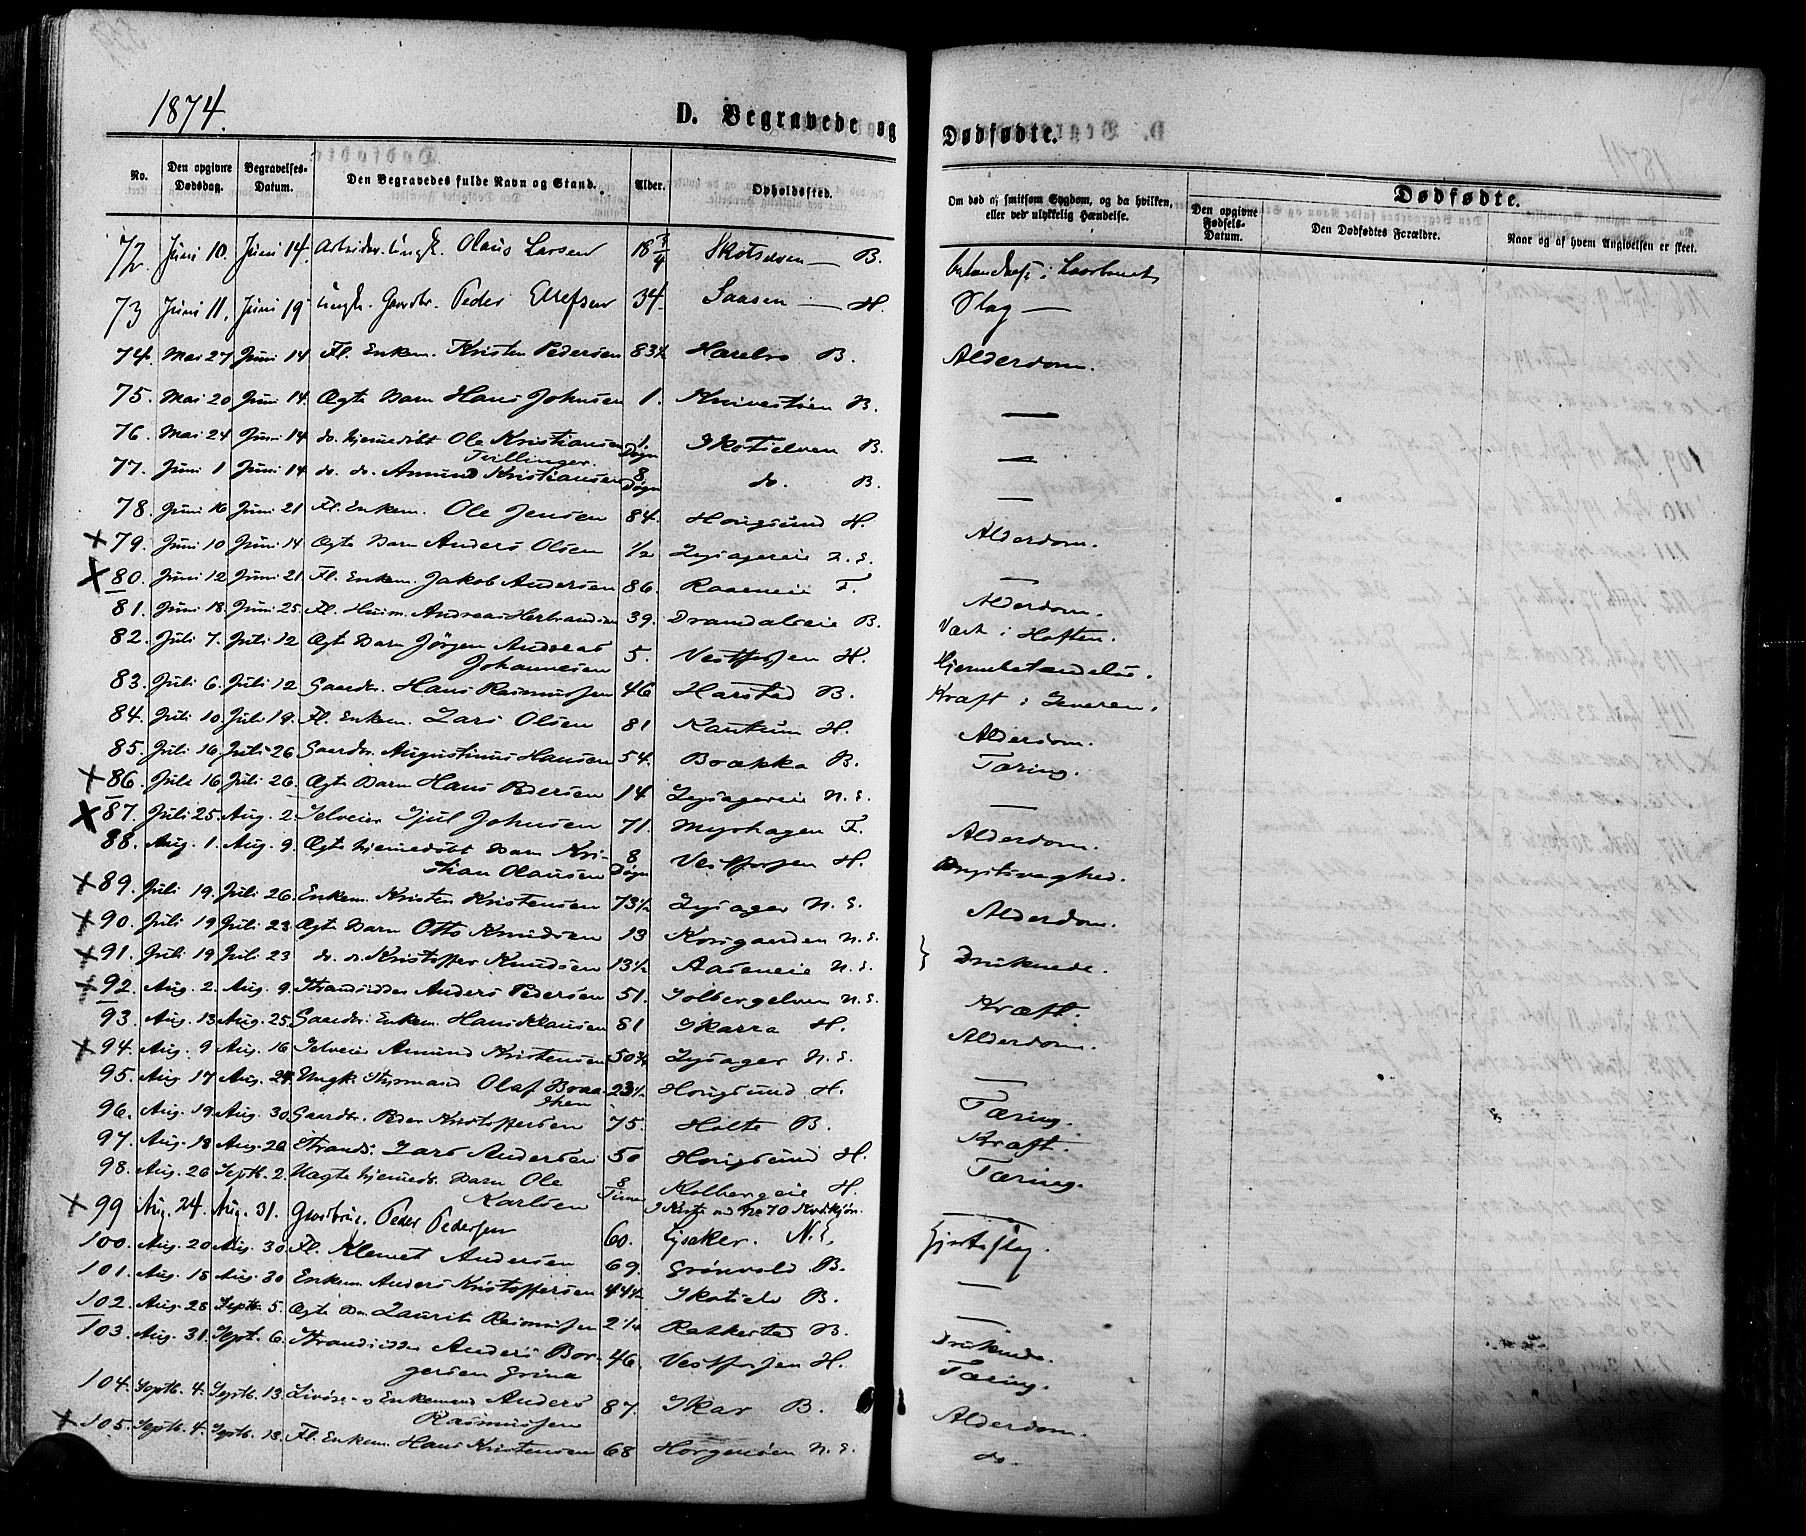 1874.
D. Begravede og
Dødfødte.
No.
Den opgivne Dødsdag.
Begravelses-Datum.
Den Begravedes fulde Navn og Stand.
Alder.
Opholdssted.
Om død af smitsom Sygdom, og da hvilken, eller ved ulykkelig Hændelse.
Dødfødte.
Den opgivne Fødsels-Datum.
Den Dødfødtes Forældre.
Naar og af hvem Angivelsen er skeet.
72. Juni 10. Juni 14. Arbeider Ungk. Olaus Larsen 18 3/4 Skotselven — B.
73 Juni 11. Juni 19 Ungk. Gaardbr. Peder Ellefsen 34. Saasen — H. Slag —
74. Mai 27 Juni 14 Fl. Enkem. Kristen Pedersen 83 1/2 Harelro B. Alderdom.
75. Mai 20 Juni 14. Ægte Barn Hans Johnsen 1. Knivestöen B. —
76. Mai 24 Juni 14 do. hjemmedöbt Ole Kristiansen 1. Døgn Skotselven B. —
Tvillinger.
77. Juni 1 Juni 14 do. do. Amund Kristiansen 8 Døgn do. B. —
78. Juni 16 Juni 21 Fl. Enkem. Ole Jensen 84. Hougsund H. Alderdom.
× 79. Juni 10 Juni 14 Ægte Barn Anders Olsen 1/2 Lysagereie N. E. —
× 80. Juni 12 Juni 21 Fl. Enkem. Jakob Andersen 86. Raaeneie F. Alderdom.
81. Juni 18. Juni 25. Fl. Husm. Andreas Herbrandsen 39. Dramdaleie B. Værk i Hoften.
82. Juli 7. Juli 12 Ægte Barn Jörgen Andreas Johannesen 5. Vestfossen H. Hjernebetændelse.
83. Juli 6. Juli 12 Gaardbr. Hans Rasmussen 46 Harstad B. Kræft i Leveren.
84. Juli 10 Juli 19. Fl. Enkem. Lars Olsen 81 Kantum H. Alderdom.
85. Juli 16. Juli 26 Gaardbr. Augustinus Hansen 54. Brække B. Tæring.
× 86. Juli 16 Juli 26. Ægte Barn Hans Pedersen 14 Lysagereie N. E. —
× 87. Juli 25. Aug. 2 Selveier Gjul Johnsen 71. Myrhagen F. Alderdom.
88. Aug. 1. Aug. 9. Ægte hjemmedöbt Barn Kristian Olausen 8 Døgn Vestfossen H. Brystsvaghed.
× 89. Juli 19. Juli 26. Enkem. Kristen Kristensen 73 1/2 Lysager N. E. Alderdom.
× 90. Juli 19 Juli 23 Ægte Barn Otto Knudsen 13 Korsgaarden N. E.
× 91. Juli 19 Juli 23 do. do. Kristoffer Knudsen 13 1/2 Aaseneie N. E. } Druknede.
× 92. Aug. 2. Aug. 9. Strandsidder Anders Pedersen 51. Solbergelven N. E. Kræft.
93. Aug. 13 Aug. 25 Gaardbr. Enkem. Hans Klausen 81 Skarra H. Alderdom.
× 94. Aug. 9 Aug. 16 Selveier Amund Kristensen 50 3/4 Lysager N. E. —
95. Aug. 17 Aug. 24 Ungk. Styrmand Olaf Braathen 23 1/2 Hougsund H. Tæring.
96. Aug. 19. Aug. 30 Gaardbr. Peder Kristoffersen 75. Holte B. Kræft.
97. Aug. 18 Aug. 26 Strands. Lars Andersen 50 Hougsund H. Tæring.
98. Aug. 26 Septb. 2. Uægte hjemmedb. Barn Ole Karlsen 8 Timer Kolbergeie H. —
I Kiste med No 70
× 99 Aug. 24. Aug. 31. Gaardbr. Peder Pedersen 60. Lysaker. N. E. Hjerteslag.
100. Aug. 20 Aug. 30 Fl. Klemet Andersen 69. Grönvold B. —
101. Aug. 15 Aug. 30 Enkem. Anders Kristoffersen Skotselv B. —
102. Aug. 28 Septb. 5. Ægte Bn. Laurits Rasmussen 2 1/4 Rakkestad B. Druknede.
103. Aug. 31. Sept. 6. Strandsidder Anders Borgersen Grina 46. Vestfossen H. Tæring.
104. Septb. 4. Septb. 13. Livöre- og Enkemand Anders Rasmussen 87. Skar B. Alderdom.
× 105. Septb. 4. Septb. 13. Fl. Enkem. Hans Kristensen 68 Horgenöen N. E. do.